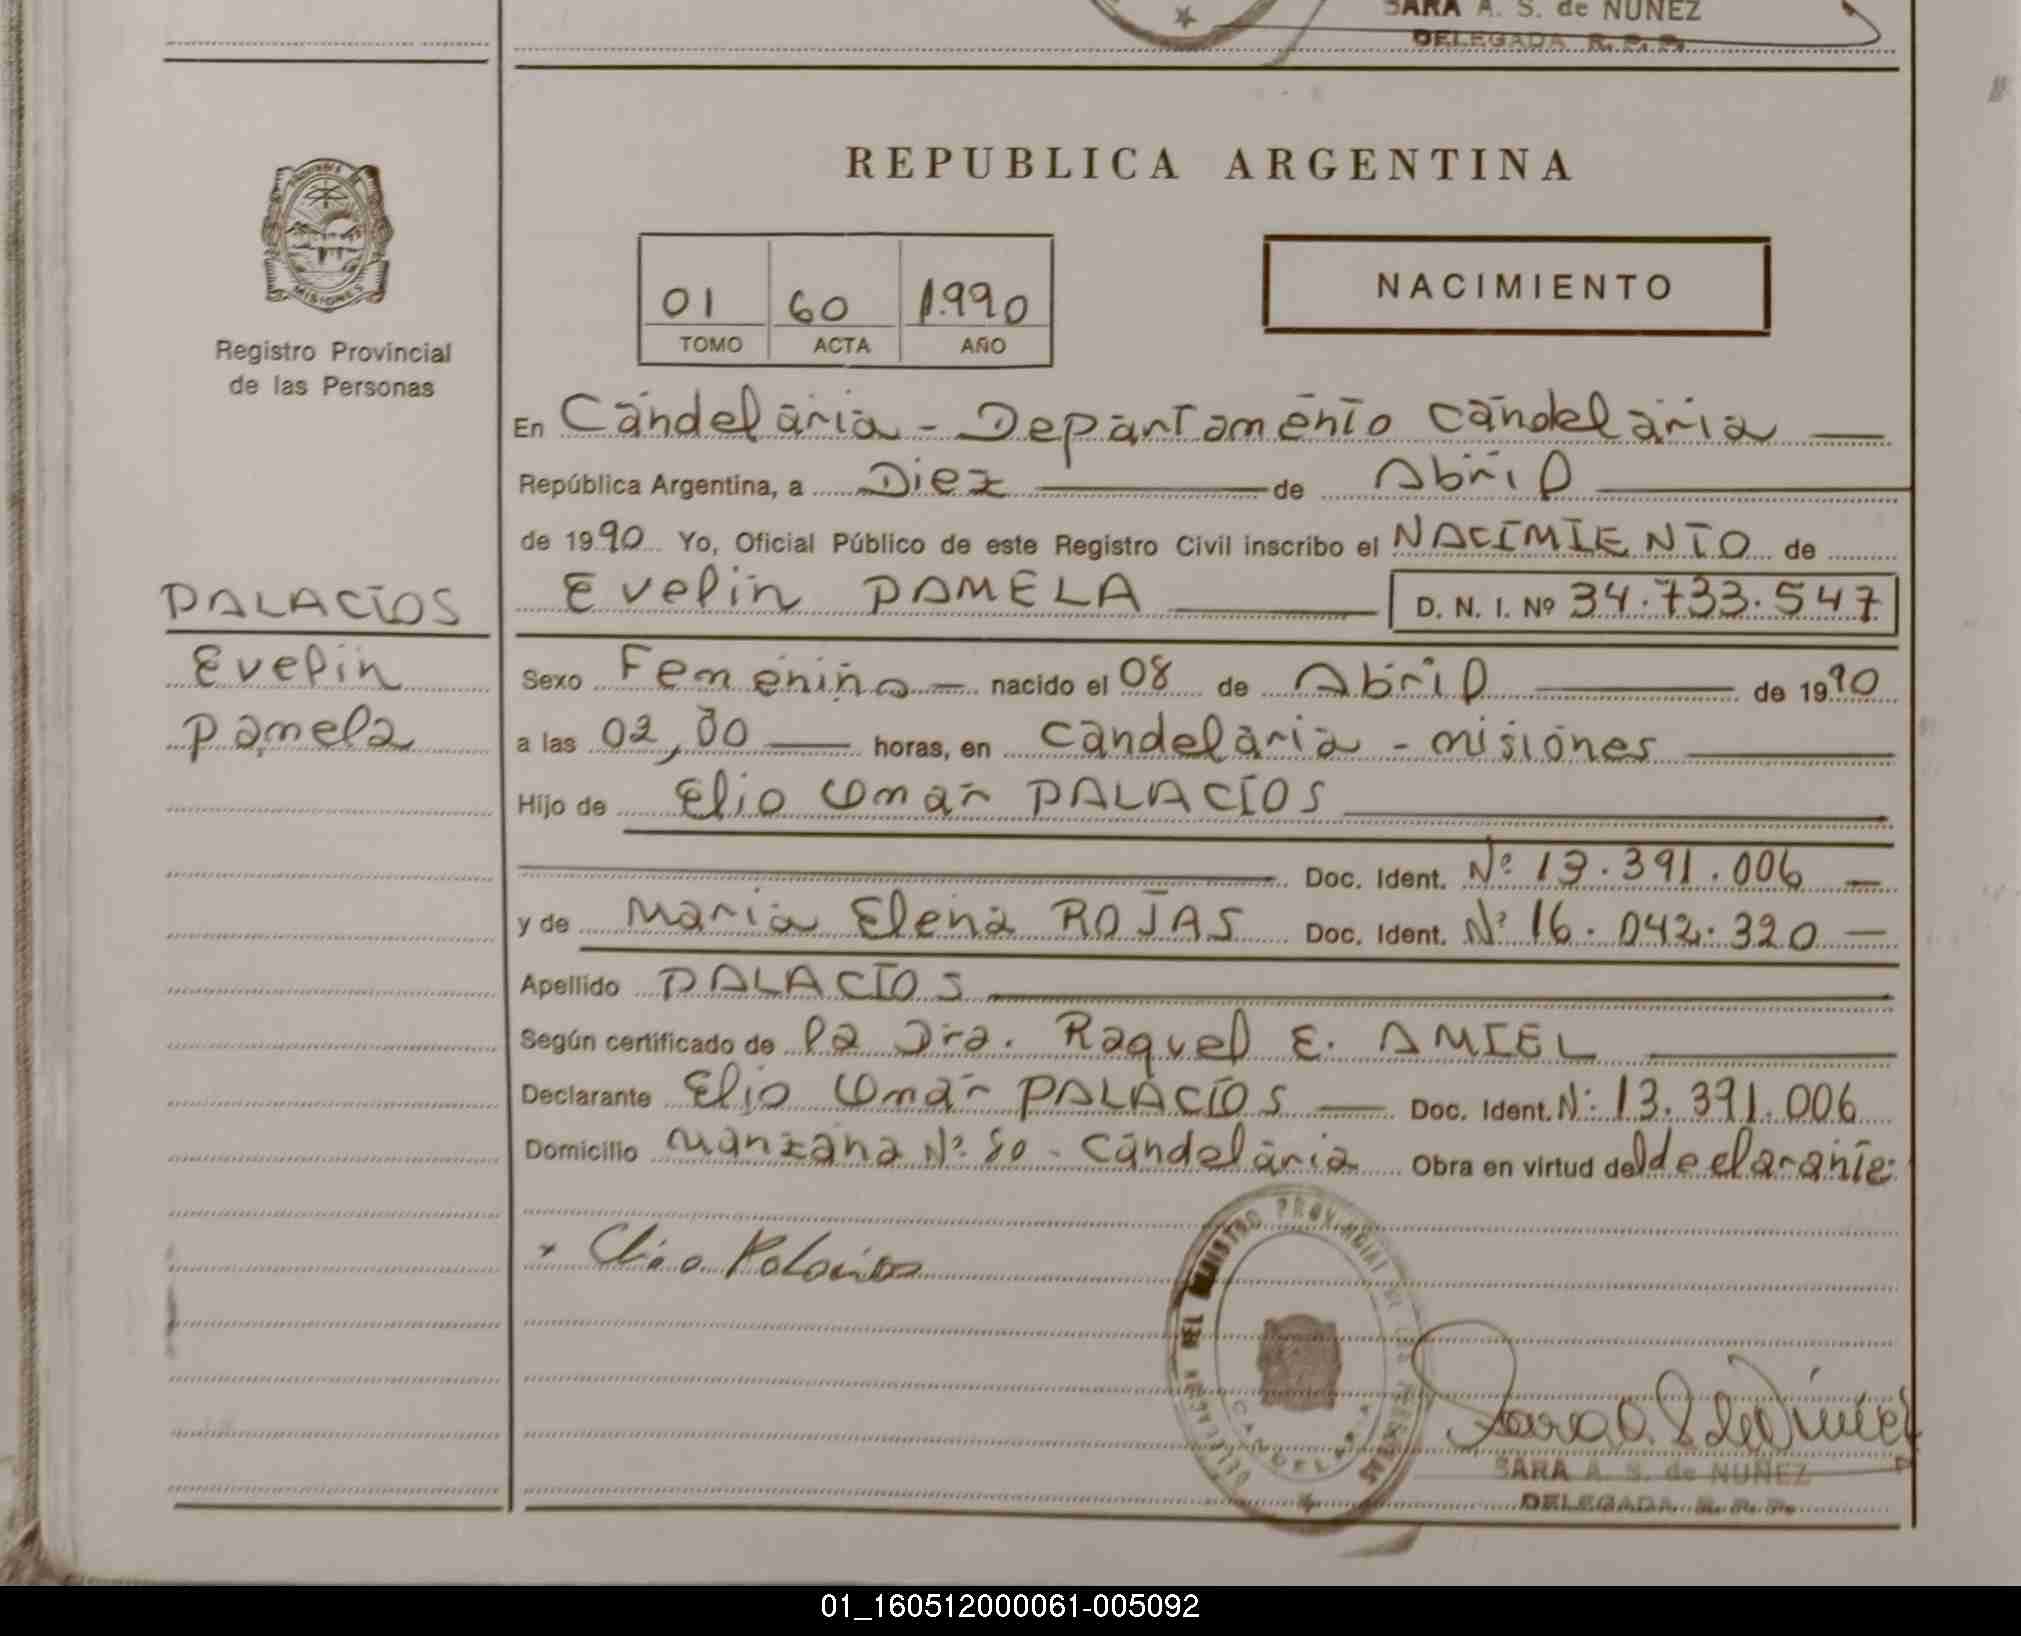 SARA A. S. de NUÑEZ
DELEGADA R. P. P.
REPUBLICA ARGENTINA
MISIONES
Registro Provincial
de las Personas
01 60 1.990
TOMO ACTA AÑO
NACIMIENTO
En Candelaria - Departamento Candelaria
República Argentina, a Diez de Abril
de 1990 Yo, Oficial Público de este Registro Civil inscribo el NACIMIENTO de
Evelin PAMELA D. N. I. Nº 34.733.547
PALACIOS
Evelin
Pamela
Sexo Femenino nacido el 08 de Abril de 1990
a las 02,00 horas, en Candelaria - misiones
Hijo de Elio Omar PALACIOS
Doc. Ident. Nº 13.391.006
y de Maria Elena ROJAS Doc. Ident. Nº 16.042.320
Apellido PALACIOS
Según certificado de la Dra. Raquel E. AMIEL
Declarante Elio Omar PALACIOS Doc. Ident. Nº 13.391.006
Domicilio Manzana Nº 80 - Candelaria Obra en virtud del declarante
x Elio Palacios
DEL REGISTRO PROVINCIAL DE LAS PERSONAS
CANDELARIA
Sara A. S. de Nuñez
SARA A. S. de NUÑEZ
DELEGADA R. P. P.
01_160512000061-005092